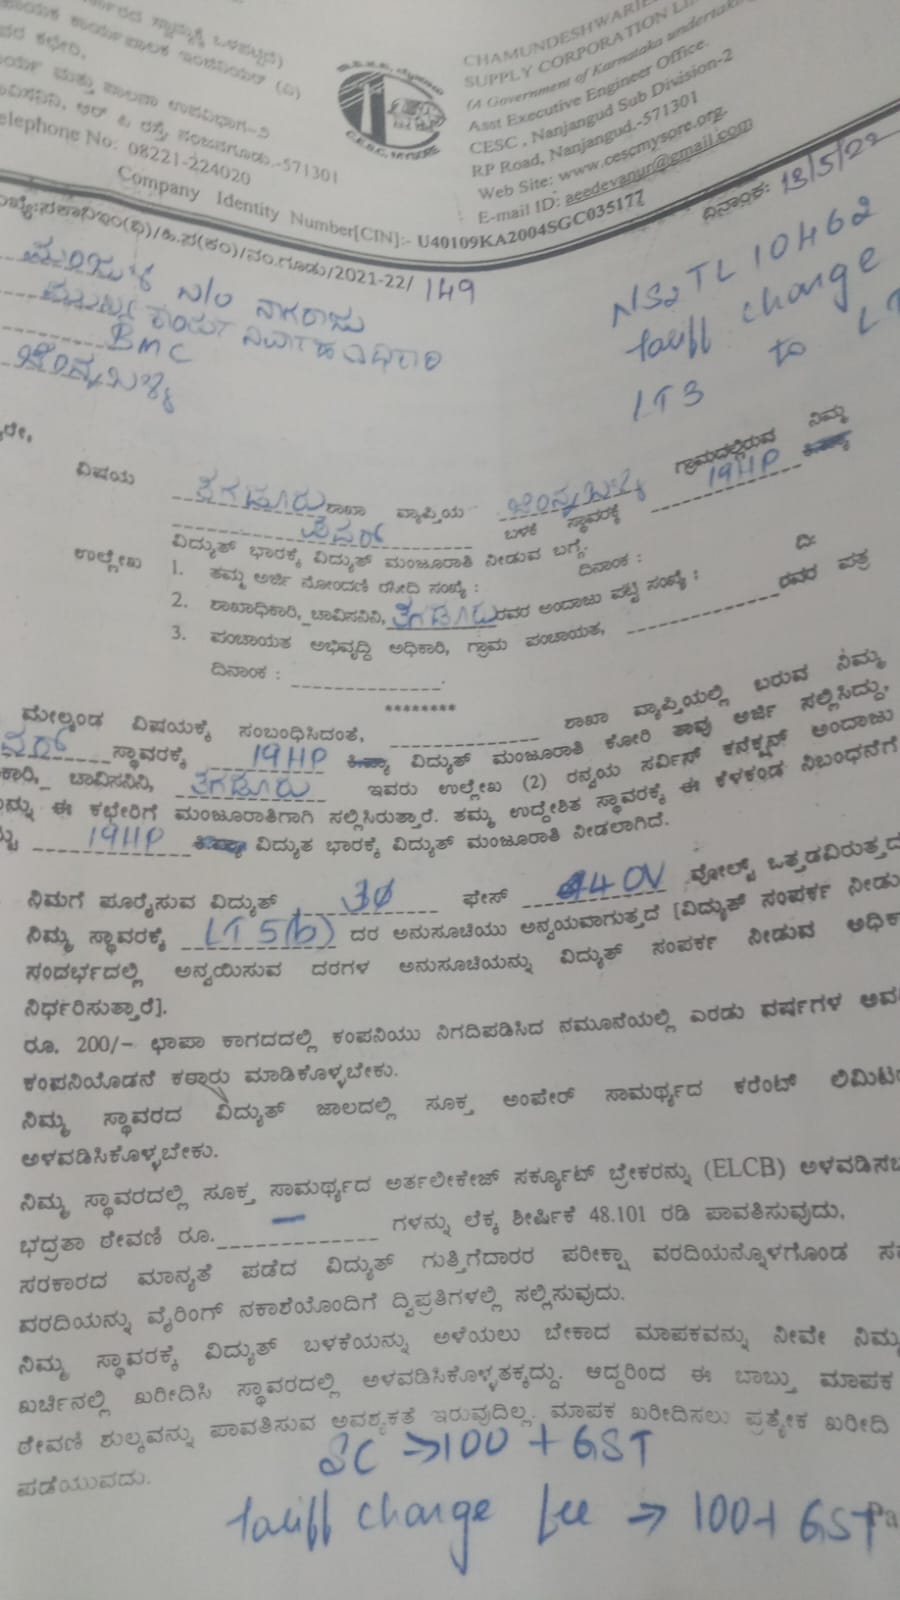 CHAMUNDESHWARI
SUPPLY CORPORATION
(A Government of Karnataka undertaking
Asst Executive Engineer Office.
CESC , Nanjangud Sub Division-2
RP Road, Nanjangud.-571301
Web Site: www.cescmysore.org.
E-mail ID: aeedevanur@gmail.com
ಕಾರ್ಯ ಮತ್ತು ಪಾಲನಾ ಉಪವಿಭಾಗ-2
ಚಾವಿಸನಿನಿ, ಆರ್ ಪಿ ರಸ್ತೆ, ನಂಜನಗೂಡು.-571301
Telephone No: 08221-224020
C.E.S.C. MYSORE
Company Identity Number[CIN]:- U40109KA2004SGC035177
/ನಂ.ಗೂಡು/2021-22/ 149
ದಿನಾಂಕ: 13/5/22
ಮಂಜುಳ W/o ನಾಗರಾಜು
BMC
NS2TL 10462
tariff change
LT3 to LT
ವಿಷಯ ತಗಡೂರು ಶಾಖಾ ವ್ಯಾಪ್ತಿಯ ಗ್ರಾಮದಲ್ಲಿರುವ ನಿಮ್ಮ
ಪವರ್ ಬಳಕೆ ಸ್ಥಾವರಕ್ಕೆ 19HP
ವಿದ್ಯುತ್ ಭಾರಕ್ಕೆ ವಿದ್ಯುತ್ ಮಂಜೂರಾತಿ ನೀಡುವ ಬಗ್ಗೆ.
ಉಲ್ಲೇಖ 1. ತಮ್ಮ ಅರ್ಜಿ ನೋಂದಣಿ ರಶೀದಿ ಸಂಖ್ಯೆ : ದಿನಾಂಕ :
2. ಶಾಖಾಧಿಕಾರಿ, ಚಾವಿಸನಿನಿ, ತಗಡೂರು ರವರ ಅಂದಾಜು ಪಟ್ಟಿ ಸಂಖ್ಯೆ : ದಿ:
3. ಪಂಚಾಯತ ಅಭಿವೃದ್ಧಿ ಅಧಿಕಾರಿ, ಗ್ರಾಮ ಪಂಚಾಯತ, ರವರ ಪತ್ರ
ದಿನಾಂಕ : .
********
ಮೇಲ್ಕಂಡ ವಿಷಯಕ್ಕೆ ಸಂಬಂಧಿಸಿದಂತೆ, ಶಾಖಾ ವ್ಯಾಪ್ತಿಯಲ್ಲಿ ಬರುವ ನಿಮ್ಮ
ಪವರ್ ಸ್ಥಾವರಕ್ಕೆ 19HP ವಿದ್ಯುತ್ ಮಂಜೂರಾತಿ ಕೋರಿ ತಾವು ಅರ್ಜಿ ಸಲ್ಲಿಸಿದ್ದು,
ಚಾವಿಸನಿನಿ, ತಗಡೂರು ಇವರು ಉಲ್ಲೇಖ (2) ರನ್ವಯ ಸರ್ವಿಸ್ ಕನೆಕ್ಷನ್ ಅಂದಾಜು
ಈ ಕಛೇರಿಗೆ ಮಂಜೂರಾತಿಗಾಗಿ ಸಲ್ಲಿಸಿರುತ್ತಾರೆ. ತಮ್ಮ ಉದ್ದೇಶಿತ ಸ್ಥಾವರಕ್ಕೆ ಈ ಕೆಳಕಂಡ ನಿಬಂಧನೆಗೆ
19HP ವಿದ್ಯುತ ಭಾರಕ್ಕೆ ವಿದ್ಯುತ್ ಮಂಜೂರಾತಿ ನೀಡಲಾಗಿದೆ.
ನಿಮಗೆ ಪೂರೈಸುವ ವಿದ್ಯುತ್ 3Ø ಫೇಸ್ 440V ವೋಲ್ಟ್ ಒತ್ತಡವಿರುತ್ತದೆ
ನಿಮ್ಮ ಸ್ಥಾವರಕ್ಕೆ LT5(b) ದರ ಅನುಸೂಚಿಯು ಅನ್ವಯವಾಗುತ್ತದೆ [ವಿದ್ಯುತ್ ಸಂಪರ್ಕ ನೀಡು
ಸಂದರ್ಭದಲ್ಲಿ ಅನ್ವಯಿಸುವ ದರಗಳ ಅನುಸೂಚಿಯನ್ನು ವಿದ್ಯುತ್ ಸಂಪರ್ಕ ನೀಡುವ ಅಧಿಕಾ
ನಿರ್ಧರಿಸುತ್ತಾರೆ].
ರೂ. 200/- ಛಾಪಾ ಕಾಗದದಲ್ಲಿ ಕಂಪನಿಯು ನಿಗದಿಪಡಿಸಿದ ನಮೂನೆಯಲ್ಲಿ ಎರಡು ವರ್ಷಗಳ ಅವ
ಕಂಪನಿಯೊಡನೆ ಕರಾರು ಮಾಡಿಕೊಳ್ಳಬೇಕು.
ನಿಮ್ಮ ಸ್ಥಾವರದ ವಿದ್ಯುತ್ ಜಾಲದಲ್ಲಿ ಸೂಕ್ತ ಅಂಪೇರ್ ಸಾಮರ್ಥ್ಯದ ಕರೆಂಟ್ ಲಿಮಿಟ
ಅಳವಡಿಸಿಕೊಳ್ಳಬೇಕು.
ನಿಮ್ಮ ಸ್ಥಾವರದಲ್ಲಿ ಸೂಕ್ತ ಸಾಮರ್ಥ್ಯದ ಅರ್ತಲೀಕೇಜ್ ಸರ್ಕ್ಯೂಟ್ ಬ್ರೇಕರನ್ನು (ELCB) ಅಳವಡಿಸಬ
ಭದ್ರತಾ ಠೇವಣಿ ರೂ. — ಗಳನ್ನು ಲೆಕ್ಕ ಶೀರ್ಷಿಕೆ 48.101 ರಡಿ ಪಾವತಿಸುವುದು.
ಸರಕಾರದ ಮಾನ್ಯತೆ ಪಡೆದ ವಿದ್ಯುತ್ ಗುತ್ತಿಗೆದಾರರ ಪರೀಕ್ಷಾ ವರದಿಯನ್ನೊಳಗೊಂಡ ಸ
ವರದಿಯನ್ನು ವೈರಿಂಗ್ ನಕಾಶೆಯೊಂದಿಗೆ ದ್ವಿಪ್ರತಿಗಳಲ್ಲಿ ಸಲ್ಲಿಸುವುದು.
ನಿಮ್ಮ ಸ್ಥಾವರಕ್ಕೆ ವಿದ್ಯುತ್ ಬಳಕೆಯನ್ನು ಅಳೆಯಲು ಬೇಕಾದ ಮಾಪಕವನ್ನು ನೀವೇ ನಿಮ್ಮ
ಖರ್ಚಿನಲ್ಲಿ ಖರೀದಿಸಿ ಸ್ಥಾವರದಲ್ಲಿ ಅಳವಡಿಸಿಕೊಳ್ಳತಕ್ಕದ್ದು. ಆದ್ದರಿಂದ ಈ ಬಾಬ್ತು ಮಾಪಕ
ಠೇವಣಿ ಶುಲ್ಕವನ್ನು ಪಾವತಿಸುವ ಅವಶ್ಯಕತೆ ಇರುವುದಿಲ್ಲ. ಮಾಪಕ ಖರೀದಿಸಲು ಪ್ರತ್ಯೇಕ ಖರೀದಿ
ಪಡೆಯುವದು.
SC → 100 + GST
tariff change fee → 100+ GST
Pa